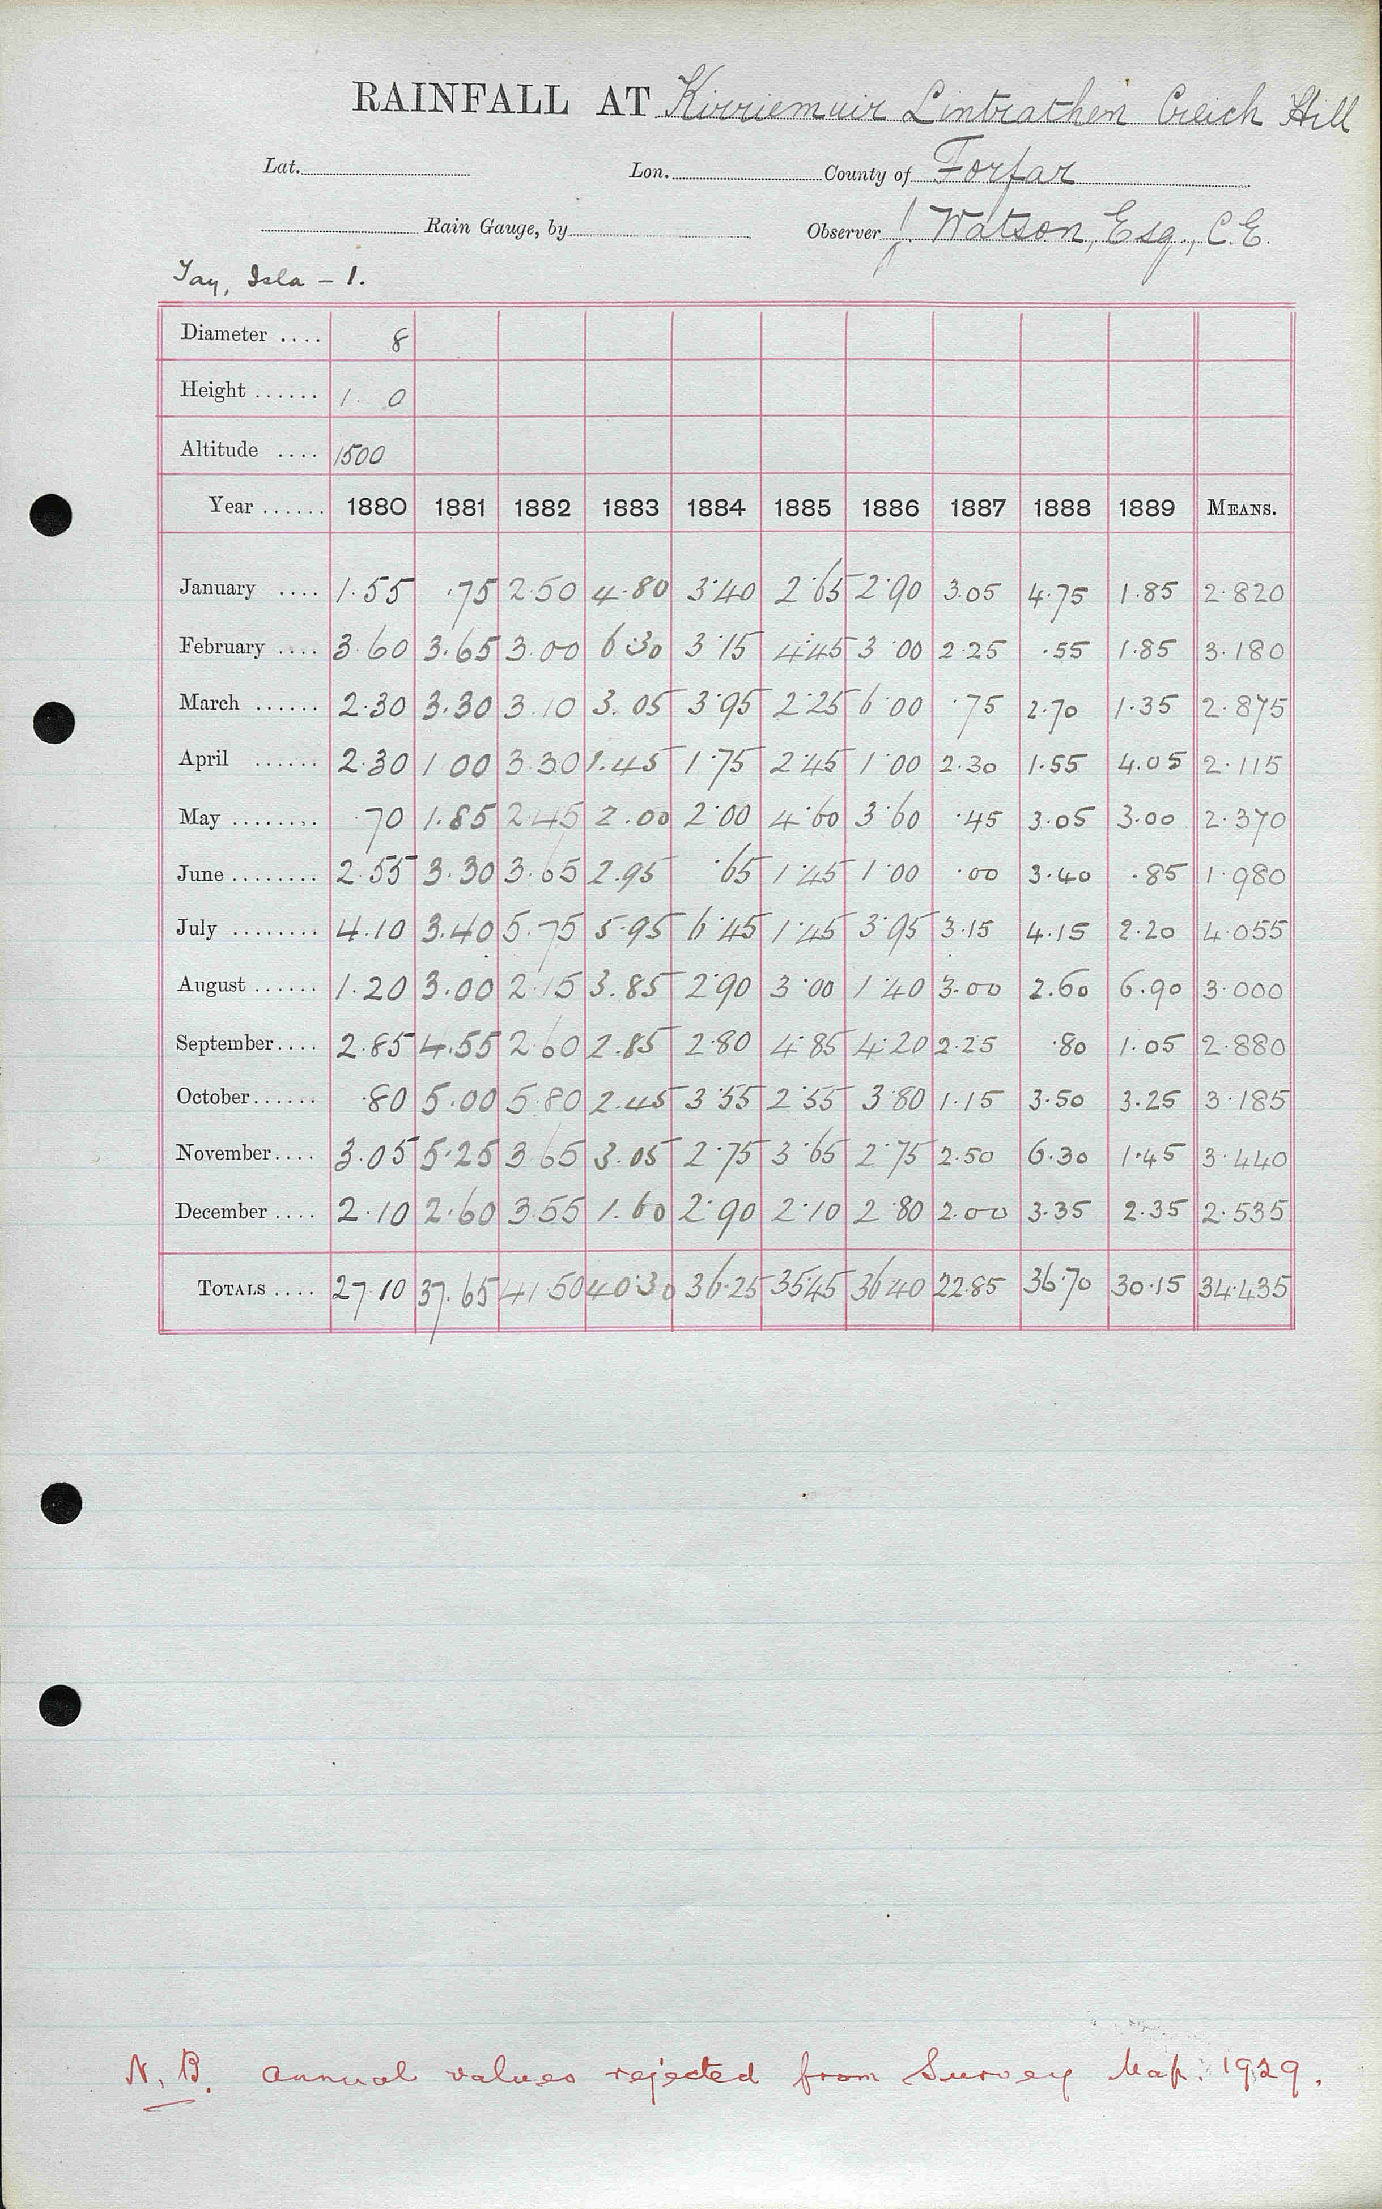 RAINFALL AT Kirriemuir Lintrathen Creich Hill
Lat. Lon. County of Forfar
Rain Gauge, by Observer J. Watson, Esq., C.E.
Tay, Isla – 1.
Diameter .... 8
Height ...... 1 0
Altitude .... 1500
Year ...... 1880 1881 1882 1883 1884 1885 1886 1887 1888 1889 MEANS.
January .... 1.55 .75 2.50 4.80 3.40 2.65 2.90 3.05 4.75 1.85 2.820
February .... 3.60 3.65 3.00 6.30 3.15 4.45 3.00 2.25 .55 1.85 3.180
March ...... 2.30 3.30 3.10 3.05 3.95 2.25 6.00 .75 2.70 1.35 2.875
April ...... 2.30 1.00 3.30 1.45 1.75 2.45 1.00 2.30 1.55 4.05 2.115
May ........ .70 1.85 2.45 2.00 2.00 4.60 3.60 .45 3.05 3.00 2.370
June ........ 2.55 3.30 3.65 2.95 .65 1.45 1.00 .00 3.40 .85 1.980
July ........ 4.10 3.40 5.75 5.95 6.45 1.45 3.95 3.15 4.15 2.20 4.055
August ...... 1.20 3.00 2.15 3.85 2.90 3.00 1.40 3.00 2.60 6.90 3.000
September .... 2.85 4.55 2.60 2.85 2.80 4.85 4.20 2.25 .80 1.05 2.880
October ...... .80 5.00 5.80 2.45 3.55 2.55 3.80 1.15 3.50 3.25 3.185
November .... 3.05 5.25 3.65 3.05 2.75 3.65 2.75 2.50 6.30 1.45 3.440
December .... 2.10 2.60 3.55 1.60 2.90 2.10 2.80 2.00 3.35 2.35 2.535
TOTALS .... 27.10 37.65 41.50 40.30 36.25 35.45 36.40 22.85 36.70 30.15 34.435
N.B. annual values rejected from Survey Map. 1929.